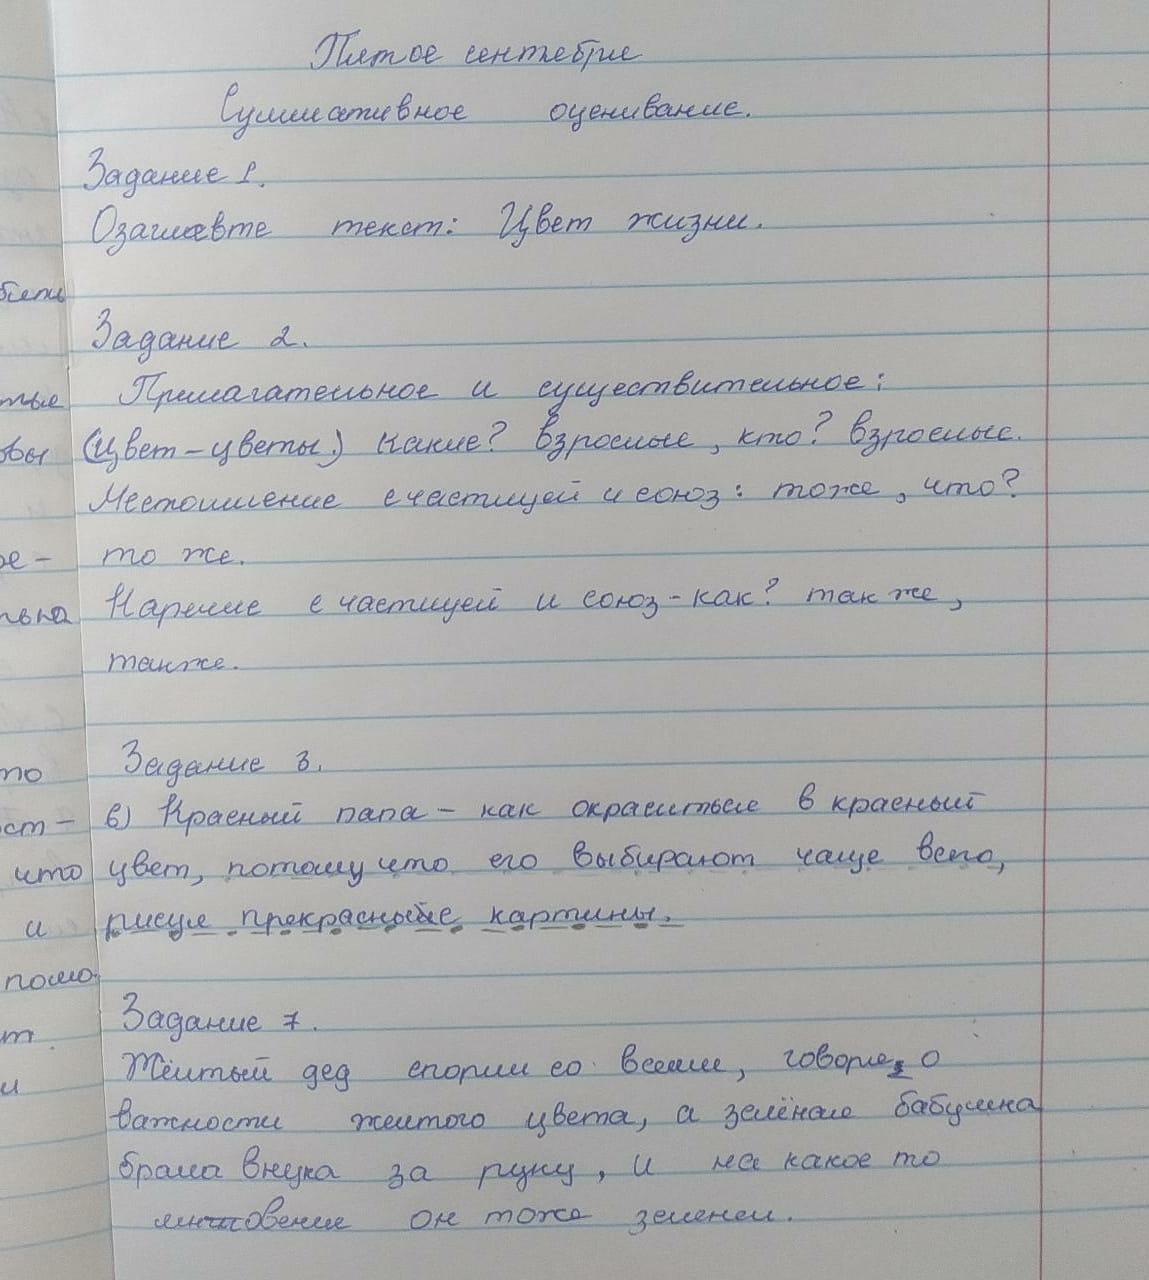 Пятое сентебря
Суммативное оценивание.
Задание 1.
Озаглавте текст: Цвет жизни.
Задание 2.
Прилагательное и существительное:
(Цвет-цветы.) Какие? Взрослые, кто? Взрослые.
Местоимение с частицей и союз: тоже, что?
то же.
Наречие с частицей и союз-как? так же,
также.
Задание 3.
в) Красный папа - как окрасить все в красный
цвет, потому что его выбирают чаще всего,
рисуя прекрасные картины.
Задание 7.
Жёлтый дед спорил со всеми, говоря о
важности желтого цвета, а зелёная бабушка
брала внука за руку, и на какое то
мгновение он тоже зеленел.
тые
вы
ре-
льна
то
ст-
что
и
помо
т
и